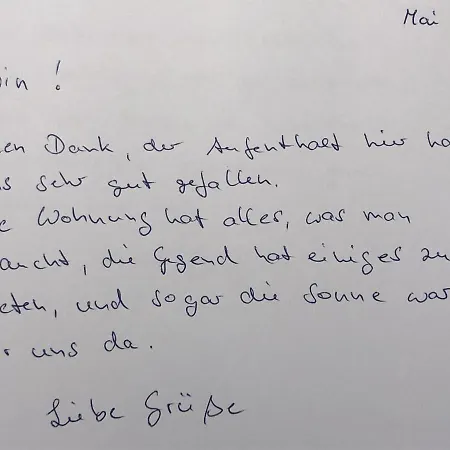 Mai
oin !
en Dank, der Aufenthalt hier ha
s sehr gut gefallen.
e Wohnung hat alles, was man
aucht, die Gegend hat einiges zu
eten, und sogar die Sonne war
r uns da.
Liebe Grüße